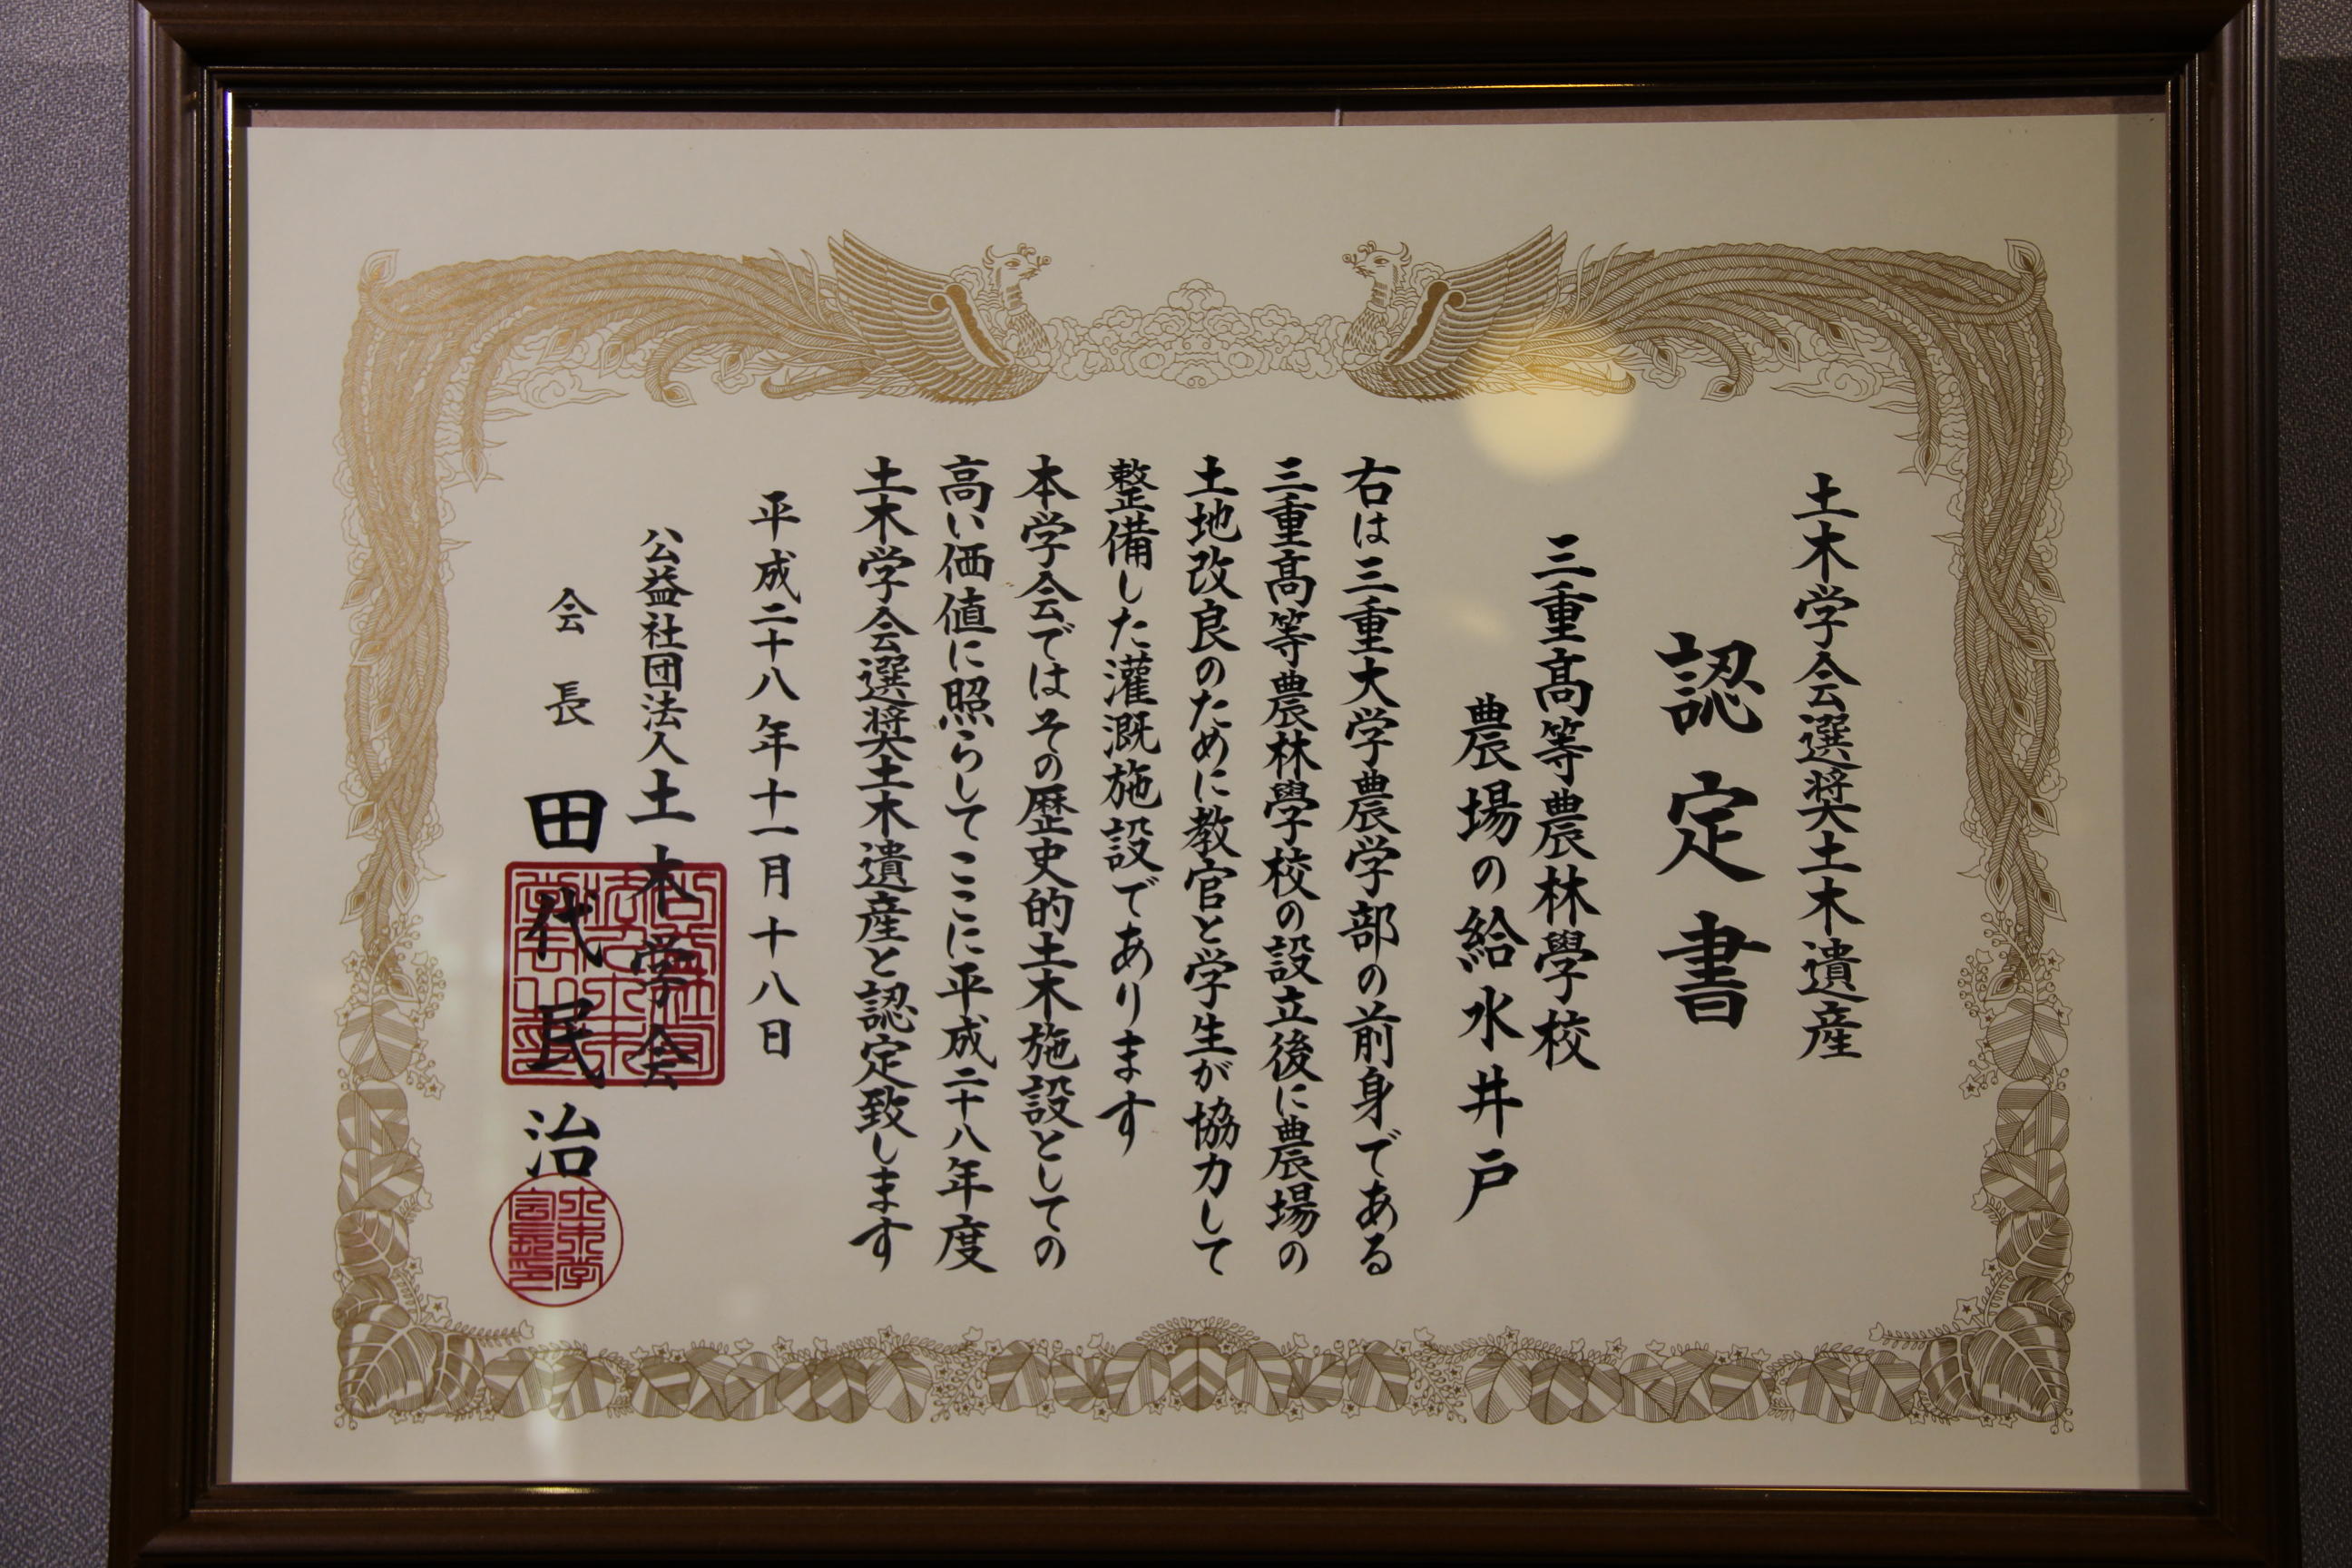 土木学会選奨土木遺産
認定書
三重髙等農林學校
農場の給水井戸
右は三重大学農学部の前身である
三重髙等農林學校の設立後に農場の
土地改良のために教官と学生が協力して
整備した灌漑施設であります
本学会ではその歴史的土木施設としての
高い価値に照らしてここに平成二十八年度
土木学会選奨土木遺産と認定致します
平成二十八年十一月十八日
公益社団法人土木学会
会長 田代民治